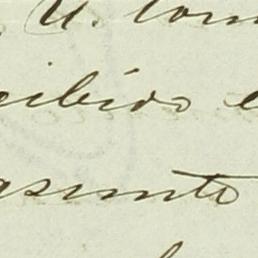 U. com
cibido e
asunto